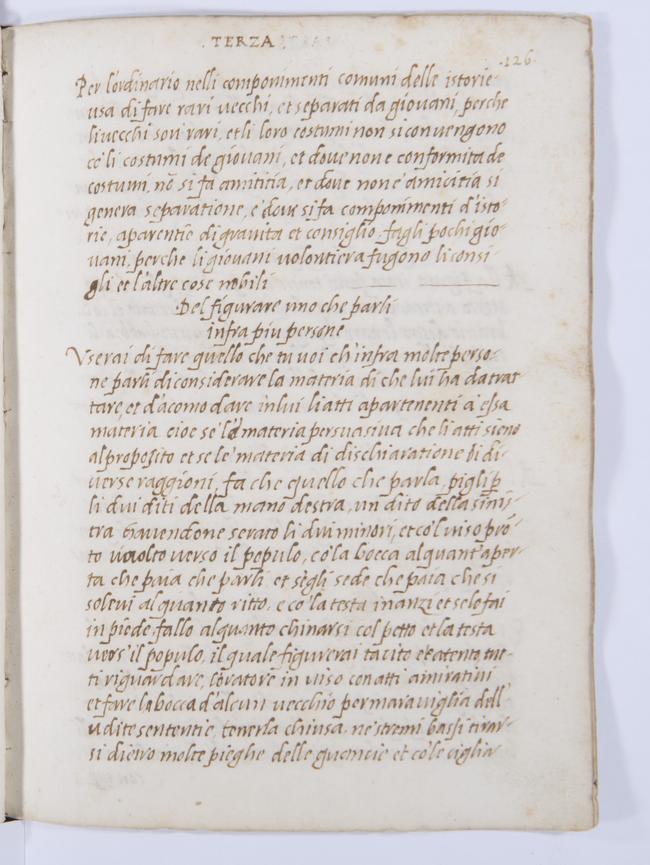 .TERZA
.126.
Per l'ordinario nelli componimenti comuni delle istorie
usa di fare rari vecchi, et separati da giovani, perche
li vecchi son rari, et li loro costumi non si convengono
cõ li costumi de giovani, et dove non e conformita de
costumi, nõ si fa amititia, et dove non e amicitia si
genera separatione, e dove si fa componimenti d'isto-
rie, aparentie di gravita et consiglio, fagli pochi gio-
vani, perche li giovani volontiera fugono li consi-
gli et l'altre cose nobili
Del figurare uno che parli
infra piu persone
Userai di fare quello che tu voi ch'infra molte perso-
ne parli di considerare la materia di che lui ha da trat
tare, et d'acomodare in lui li atti apartenenti a' essa
materia cioe se le materia persuasiva che li atti sieno
al proposito et se le materia di dischiaratione di di-
verse raggioni, fa che quello che parla, pigli p̃
li dui diti della mano destra, un dito della sinis-
tra havendone serato li dui minori, et co'l viso prõ
to volto verso il populo, cõ la bocca alquant'aper-
ta che paia che parli et s'egli sede che paia che si
solevi alquanto ritto, e cõ la testa inanzi et se lo fai
in piede, fallo alquanto chinarsi col petto et la testa
vers' il populo, il quale figurerai tacito et atento, tut-
ti riguardare, l'oratore in viso con atti amirativi
et fare la bocca d'alcun vecchio per maraviglia dell'
udite sententie, tenerla chiusa, ne stremi bassi tirar-
si dietro molte pieghe delle guancie et cõ le ciglia